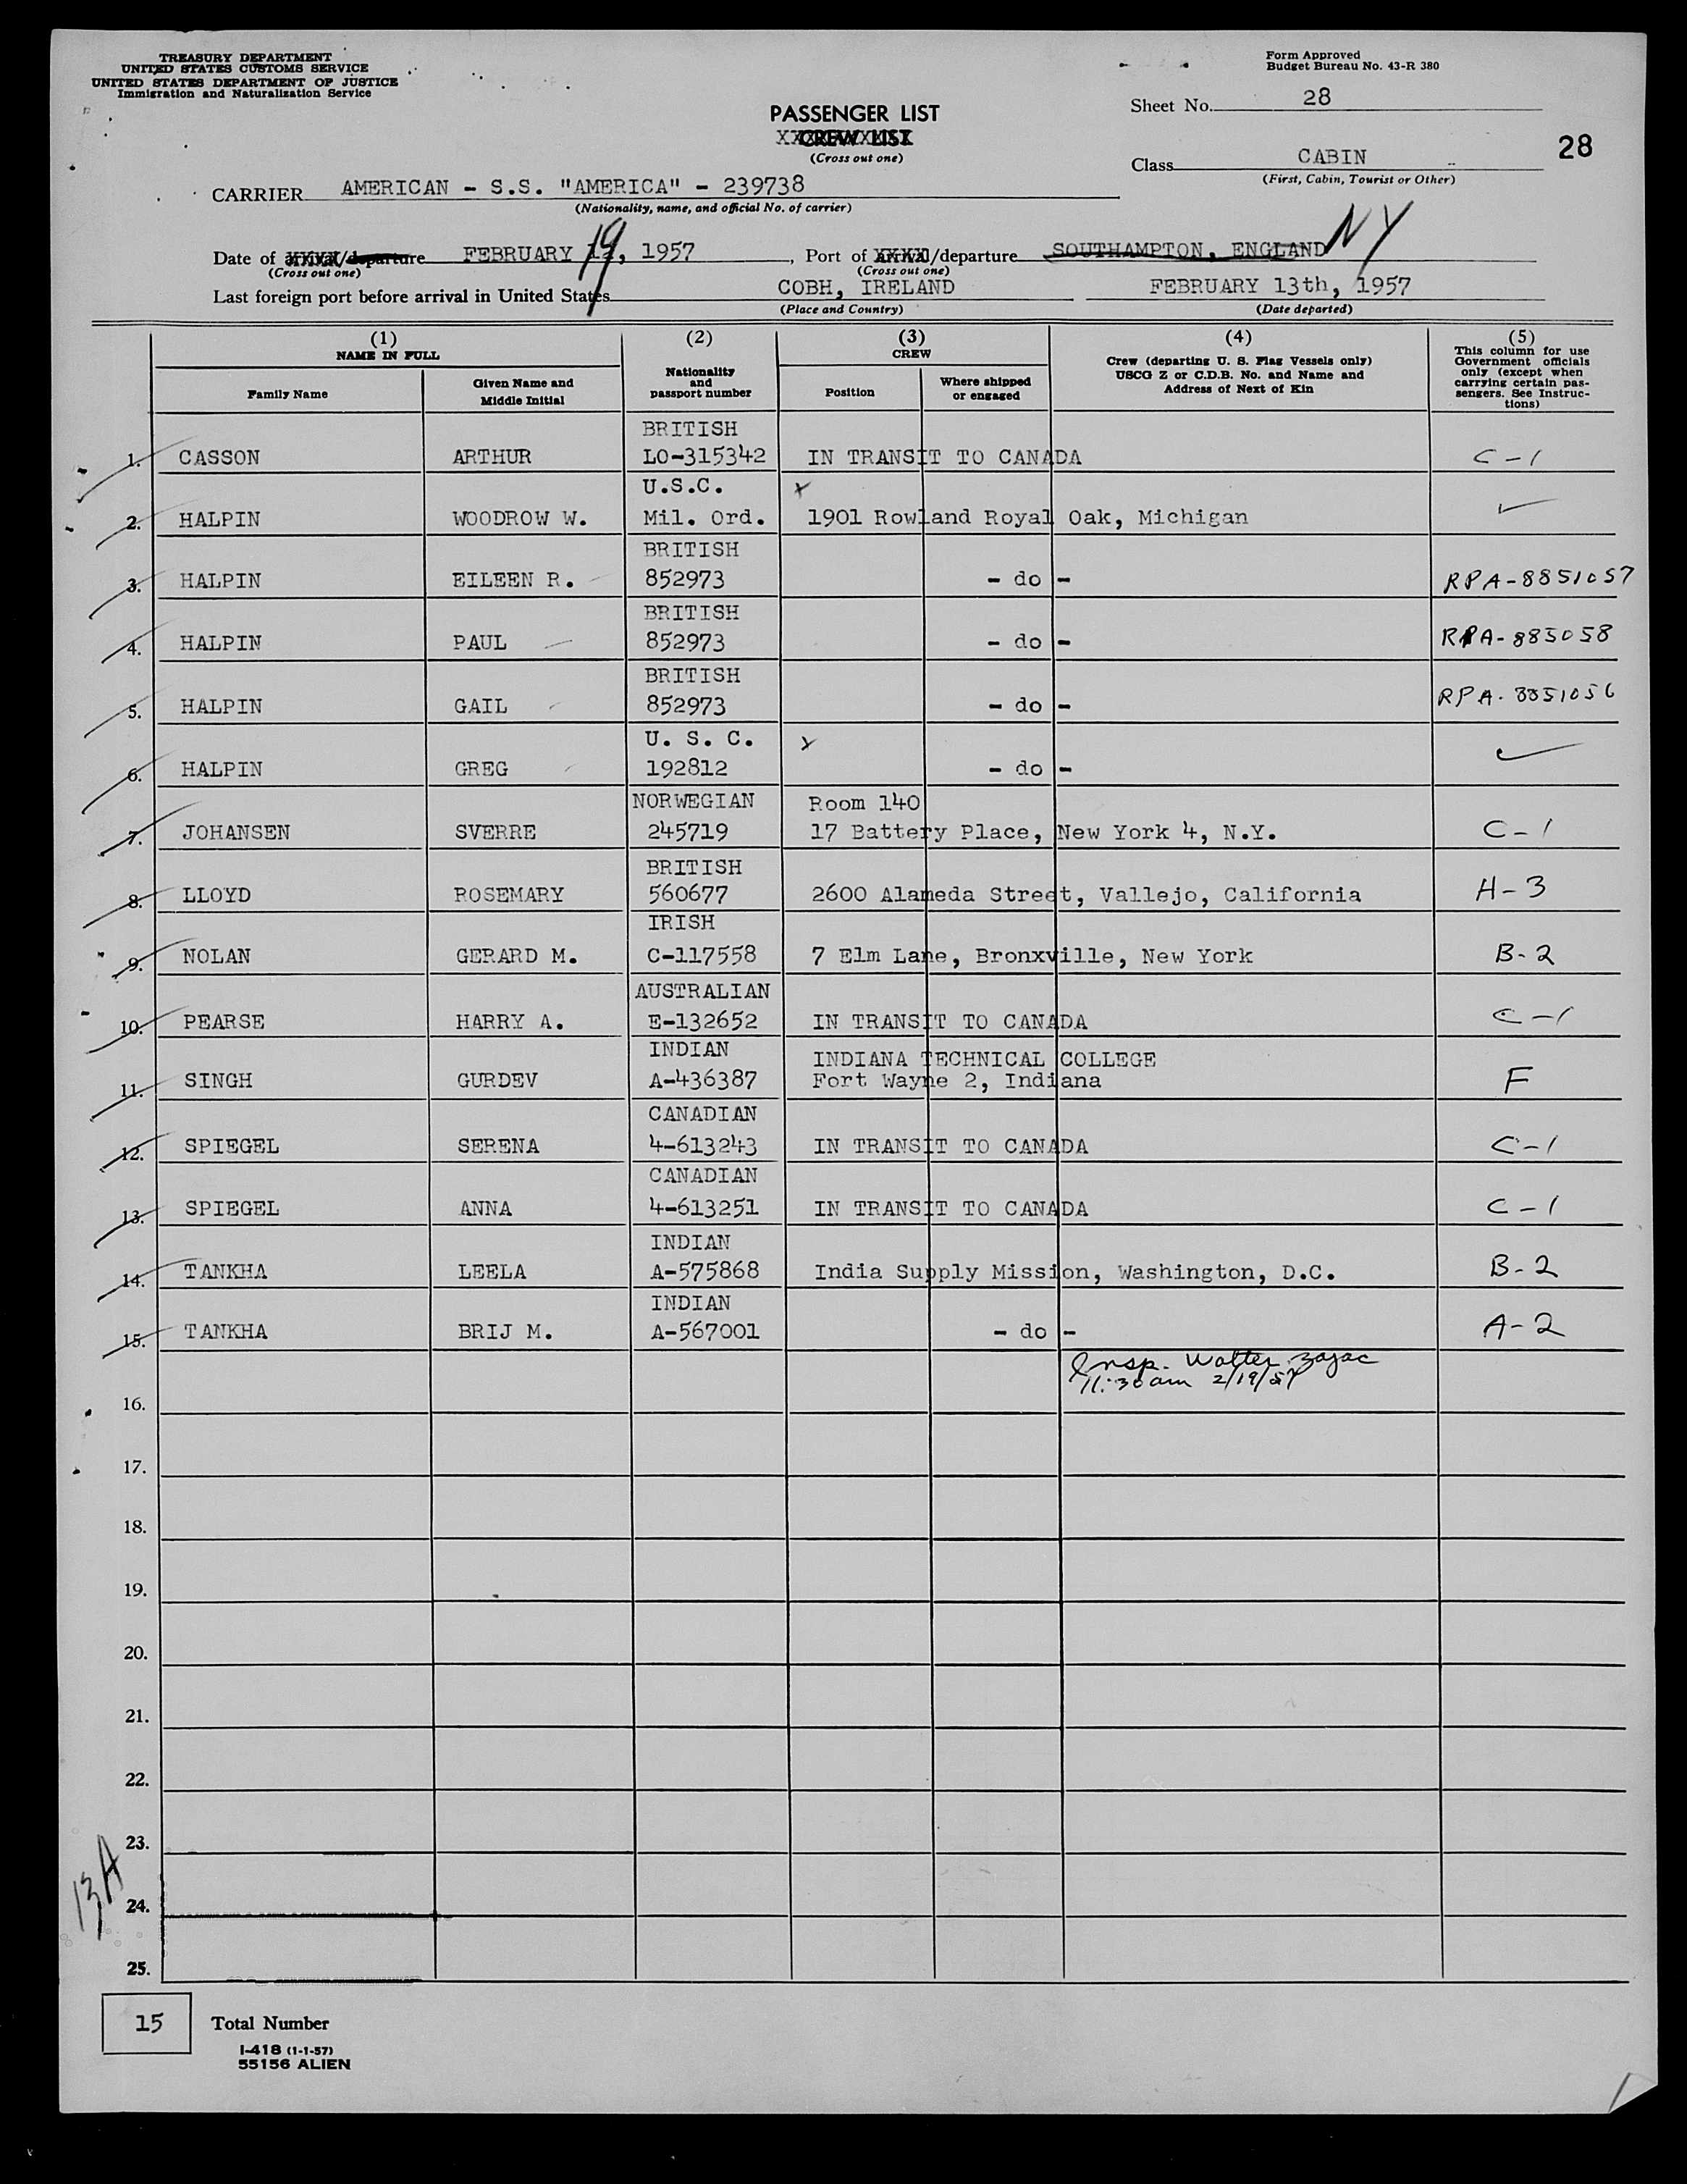 TREASURY DEPARTMENT
UNITED STATES CUSTOMS SERVICE
UNITED STATES DEPARTMENT OF JUSTICE
Immigration and Naturalization Service
Form Approved
Budget Bureau No. 43-R 380
Sheet No. 28
PASSENGER LIST
CREW LIST
(Cross out one)
28
Class CABIN
(First, Cabin, Tourist or Other)
CARRIER AMERICAN - S.S. "AMERICA" - 239738
(Nationality, name, and official No. of carrier)
Date of arrival/departure FEBRUARY 19, 1957, Port of /departure SOUTHAMPTON, ENGLAND NY
(Cross out one) (Cross out one)
Last foreign port before arrival in United States COBH, IRELAND FEBRUARY 13th, 1957
(Place and Country) (Date departed)
(1) (2) (3) (4) (5)
NAME IN FULL
Family Name
Given Name and
Middle Initial
Nationality
and
passport number
CREW
Position
Where shipped
or engaged
Crew (departing U. S. Flag Vessels only)
USCG Z or C.D.B. No. and Name and
Address of Next of Kin
This column for use
Government officials
only (except when
carrying certain pas-
sengers. See Instruc-
tions)
BRITISH
1. CASSON ARTHUR LO-315342 IN TRANSIT TO CANADA C-1
U.S.C. x
2. HALPIN WOODROW W. Mil. Ord. 1901 Rowland Royal Oak, Michigan ✓
BRITISH
3. HALPIN EILEEN R. 852973 - do - RPA-8851057
BRITISH
4. HALPIN PAUL 852973 - do - RPA-885058
BRITISH
5. HALPIN GAIL 852973 - do - RPA-8851056
U. S. C. x
6. HALPIN GREG 192812 - do - ✓
NORWEGIAN Room 140
7. JOHANSEN SVERRE 245719 17 Battery Place, New York 4, N.Y. C-1
BRITISH
8. LLOYD ROSEMARY 560677 2600 Alameda Street, Vallejo, California H-3
IRISH
9. NOLAN GERARD M. C-117558 7 Elm Lane, Bronxville, New York B-2
AUSTRALIAN
10. PEARSE HARRY A. E-132652 IN TRANSIT TO CANADA C-1
INDIAN INDIANA TECHNICAL COLLEGE
11. SINGH GURDEV A-436387 Fort Wayne 2, Indiana F
CANADIAN
12. SPIEGEL SERENA 4-613243 IN TRANSIT TO CANADA C-1
CANADIAN
13. SPIEGEL ANNA 4-613251 IN TRANSIT TO CANADA C-1
INDIAN
14. TANKHA LEELA A-575868 India Supply Mission, Washington, D.C. B-2
INDIAN
15. TANKHA BRIJ M. A-567001 - do - A-2
Insp. Walter Zajac
11:30am 2/19/57
16.
17.
18.
19.
20.
21.
22.
23.
13A
24.
25.
15 Total Number
I-418 (1-1-57)
55156 ALIEN